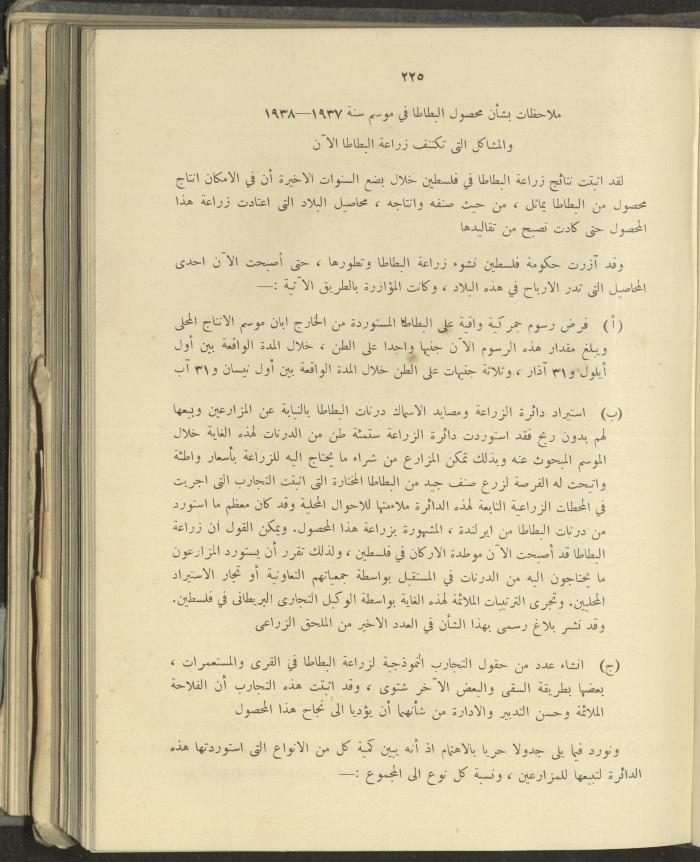 ٢٢٥
ملاحظات بشأن محصول البطاطا في موسم سنة ١٩٣٧—١٩٣٨
والمشاكل التى تكتنف زراعة البطاطا الآن
لقد اثبتت نتائج زراعة البطاطا في فلسطين خلال بضع السنوات الاخيرة أن في الامكان انتاج
محصول من البطاطا يماثل ، من حيث صنفه وانتاجه ، محاصيل البلاد التى اعتادت زراعة هذا
المحصول حتى كادت تصبح من تقاليدها
وقد آزرت حكومة فلسطين نشوء زراعة البطاطا وتطورها ، حتى أصبحت الآن احدى
المحاصيل التى تدر الارباح في هذه البلاد ، وكانت المؤازرة بالطريق الآتية :—
(أ) فرض رسوم جمركية واقية على البطاطا المستوردة من الخارج ابان موسم الانتاج المحلى
ويبلغ مقدار هذه الرسوم الآن جنيها واحدا على الطن ، خلال المدة الواقعة بين أول
أيلول و٣١ آذار ، وثلاثة جنيهات على الطن خلال المدة الواقعة بين أول نيسان و٣١ آب
(ب) استيراد دائرة الزراعة ومصايد الاسماك درنات البطاطا بالنيابة عن المزارعين وبيعها
لهم بدون ربح فقد استوردت دائرة الزراعة ستمئة طن من الدرنات لهذه الغاية خلال
الموسم المبحوث عنه وبذلك تمكن المزارع من شراء ما يحتاج اليه للزراعة بأسعار واطئة
واتيحت له الفرصة لزرع صنف جيد من البطاطا المختارة التى اثبتت التجارب التى اجريت
في المحطات الزراعية التابعة لهذه الدائرة ملاءمتها للاحوال المحلية وقد كان معظم ما استورد
من درنات البطاطا من ايرلندة ، المشهورة بزراعة هذا المحصول. ويمكن القول ان زراعة
البطاطا قد أصبحت الآن موطدة الاركان في فلسطين ، ولذلك تقرر أن يستورد المزارعون
ما يحتاجون اليه من الدرنات في المستقبل بواسطة جمعياتهم التعاونية أو تجار الاستيراد
المحليين. وتجرى الترتيبات الملائمة لهذه الغاية بواسطة الوكيل التجارى البريطانى في فلسطين.
وقد نشر بلاغ رسمى بهذا الشأن في العدد الاخير من الملحق الزراعى
(ج) انشاء عدد من حقول التجارب النموذجية لزراعة البطاطا في القرى والمستعمرات ،
بعضها بطريقة السقى والبعض الآخر شتوى ، وقد اثبتت هذه التجارب أن الفلاحة
الملائمة وحسن التدبير والادارة من شأنهما أن يؤديا الى نجاح هذا المحصول
ونورد فيما يلى جدولا حريا بالاهتمام اذ أنه يبين كمية كل من الانواع التى استوردتها هذه
الدائرة لتبيعها للمزارعين ، ونسبة كل نوع الى المجموع :—